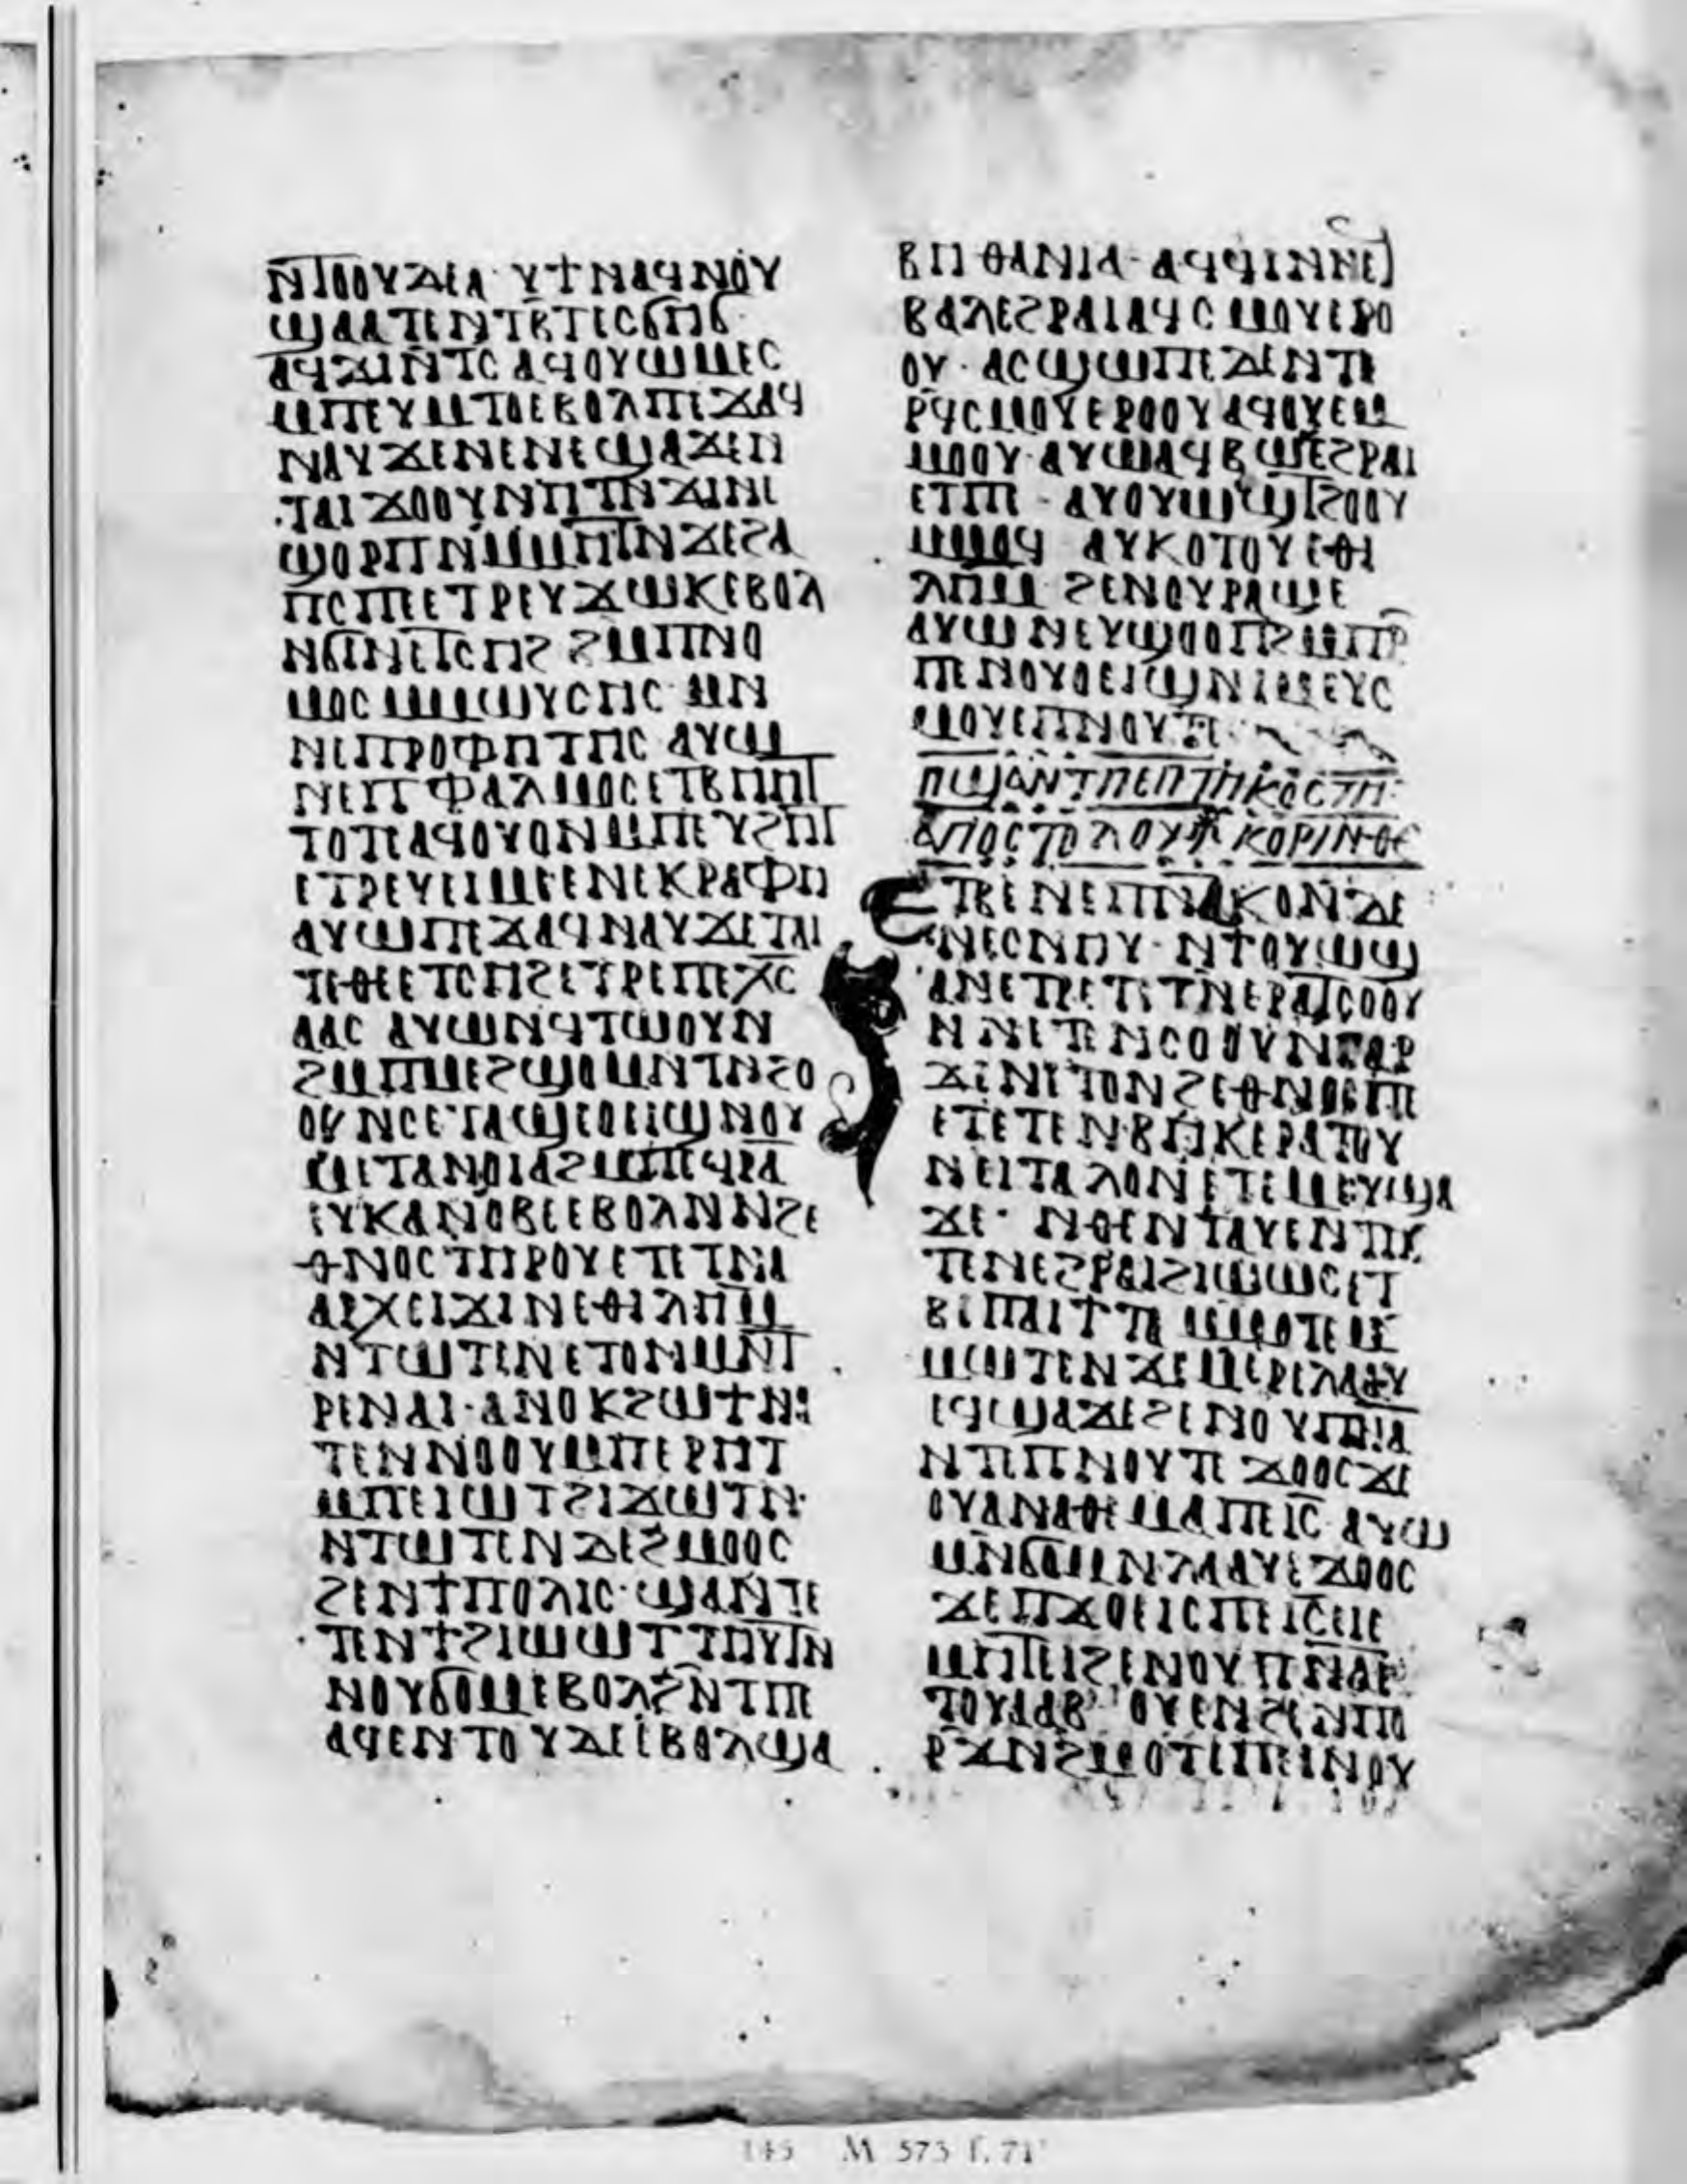 ⲛⲧⲟⲟⲩⲇⲉⲁ ⲩϯⲛⲁϥⲛⲟⲩ
ϣⲁⲁⲡⲉⲛⲧⲃⲧⲉⲥϭⲏϭ
ⲁϥϫⲓⲛⲧⲥ ⲁϥⲟⲩⲱⲙⲉⲥ
ⲙⲡⲉⲩⲙⲧⲟⲉⲃⲟⲗⲡⲉϫⲁϥ
ⲛⲁⲩϫⲉⲛⲉⲛⲉϣⲁϫⲉⲛ
ⲧⲁⲓϫⲟⲟⲩⲛⲏⲧⲛϫⲓⲛⲓ
ϣⲟⲣⲡⲛⲙⲙⲏⲧⲛϫⲉϩⲁ
ⲡⲥⲡⲉⲉⲧⲣⲉⲩϫⲱⲕⲉⲃⲟⲗ
ⲛϭⲓⲛⲉⲧⲥⲏϩ ϩⲙⲡⲛⲟ
ⲙⲟⲥ ⲙⲙⲱⲩⲥⲏⲥ ⲙⲛ
ⲛⲉⲡⲣⲟⲫⲏⲧⲏⲥ ⲁⲩⲱ
ⲛⲉⲡⲯⲁⲗⲙⲟⲥⲉⲧⲃⲏⲏⲧ
ⲧⲟⲧⲉⲁϥⲟⲩⲟⲛⲙⲡⲉⲩϩⲏⲧ
ⲉⲧⲣⲉⲩⲉⲓⲙⲉⲉⲛⲉⲕⲣⲁⲫⲏ
ⲁⲩⲱⲡⲉϫⲁϥⲛⲁⲩϫⲉⲧⲁⲓ
ⲧⲉⲑⲉⲉⲧⲥⲏϩⲉⲧⲣⲉⲡⲉⲭⲥ
ⲁⲁⲥ ⲁⲩⲱⲛϥⲧⲱⲟⲩⲛ
ϩⲙⲡⲙⲉϩϣⲟⲙⲛⲧⲛϩⲟ
ⲟⲩⲛⲥⲉⲧⲁϣⲉⲟⲉⲓϣⲛⲟⲩ
ⲙⲉⲧⲁⲛⲟⲓⲁϩⲙⲡⲉϥⲣⲁ
ⲉⲩⲕⲁⲛⲟⲃⲉⲉⲃⲟⲗⲛⲛϩⲉ
ⲑⲛⲟⲥⲧⲏⲣⲟⲩⲉⲧⲉⲧⲛⲁ
ⲁⲣⲭⲉⲓϫⲓⲛⲉⲑⲓⲗⲏⲙ
ⲛⲧⲱⲧⲉⲛⲉⲧⲟⲙⲙⲛⲧ
ⲣⲉⲛⲁⲓ·ⲁⲛⲟⲕϩⲱϯⲛⲁ
ⲧⲉⲛⲛⲟⲟⲩⲙⲡⲉⲣⲏⲧ
ⲙⲡⲉⲓⲱⲧϩⲓϫⲱⲧⲛ·
ⲛⲧⲱⲧⲉⲛⲇⲉϩⲙⲟⲟⲥ
ϩⲉⲛϯⲡⲟⲗⲓⲥ·ϣⲁⲛⲧⲉ
ⲧⲉⲛϯϩⲓⲱⲱⲧⲧⲏⲩⲧⲛ
ⲛⲟⲩϭⲟⲙⲉⲃⲟⲗϩⲛⲧⲡⲉ
ⲁϥⲉⲛⲧⲟⲩⲇⲉⲉⲃⲟⲗϣⲁ
ⲃⲏⲑⲁⲛⲓⲁ·ⲁϥϥⲓⲛⲛⲉϥ
ⲃⲁⲗⲉϩⲣⲁⲓⲁϥⲥⲙⲟⲩⲉⲣⲟ
ⲟⲩ·ⲁⲥϣⲱⲡⲉⲇⲉⲛⲧⲉ
ⲣϥⲥⲙⲟⲩⲉⲣⲟⲟⲩⲁϥⲟⲩⲉⲙ
ⲙⲟⲟⲩ·ⲁⲩⲱⲁϥⲃⲱⲕⲉϩⲣⲁⲓ
ⲉⲧⲡⲉ·ⲁⲩⲟⲩⲱϣⲧϩⲟⲟⲩ
ⲙⲙⲟϥ ⲁⲩⲕⲟⲧⲟⲩⲉⲑⲓ
ⲗⲏⲙ ϩⲉⲛⲟⲩⲣⲁϣⲉ
ⲁⲩⲱⲛⲉⲩϣⲟⲟⲡϩⲙⲡⲣ
ⲡⲉⲛⲟⲩⲟⲉⲓϣⲛⲓⲙⲉⲩⲥ
ⲙⲟⲩⲉⲡⲛⲟⲩⲧⲉ
ⲡϣⲁⲛⲧⲡⲉⲛⲧⲏⲕⲟⲥⲧⲏ
ⲁⲡⲟⲥⲧⲟⲗⲟⲩ ⲕⲟⲣⲓⲛⲑⲉ
ⲉⲧⲃⲉⲛⲉⲡⲛⲁⲕⲟⲛ ⲇⲉ
ⲛⲉⲥⲛⲏⲩ·ⲛϯⲟⲩⲱϣ
ⲁⲛⲉⲧⲣⲉⲧⲉⲧⲛⲉⲣⲁⲧⲥⲟⲟⲩ
ⲛ ⲛⲉⲧⲉⲛⲥⲟⲟⲩⲛⲅⲁⲣ
ϫⲉⲛⲉⲧⲟⲛϩⲉⲑⲛⲟⲥⲡⲉ
ⲉⲧⲉⲧⲉⲛⲃⲏⲕⲉⲣⲁⲧⲟⲩ
ⲛⲉⲓⲧⲁⲗⲟⲛⲉⲧⲉⲙⲉⲩϣⲁ
ϫⲉ· ⲛⲑⲉⲛⲧⲁⲩⲉⲛⲧⲏ
ⲧⲉⲛⲉϩⲣⲁⲓϩⲓⲱⲱⲥⲉⲧ
ⲃⲉⲡⲁⲓϯⲧⲁ ⲙⲙⲟⲧⲉⲛⲉ
ⲙⲱⲧⲉⲛϫⲉⲙⲉⲣⲉⲗⲁⲁⲩ
ⲉϥϣⲁϫⲉϩⲉⲛⲟⲩⲡⲛⲁ
ⲛⲧⲉⲡⲛⲟⲩⲧⲉ ϫⲟⲟⲥϫⲉ
ⲟⲩⲁⲛⲁⲑⲉⲙⲁⲡⲉⲓⲥ ⲁⲩⲱ
ⲙⲛϭⲟⲙⲛⲗⲁⲁⲩⲉϫⲟⲟⲥ
ϫⲉⲡϫⲟⲉⲓⲥⲡⲉⲓⲥⲉⲓⲉ
ⲙⲏⲧⲉⲓϩⲉⲛⲟⲩⲡⲛⲁⲉ
ⲧⲟⲩⲁⲁⲃ ⲟⲩⲉⲛϩⲉⲛⲡⲟ
ⲣϫⲛϩⲙⲟⲧⲉⲡⲉⲓⲛⲟⲩ
145 M 573 f. 71